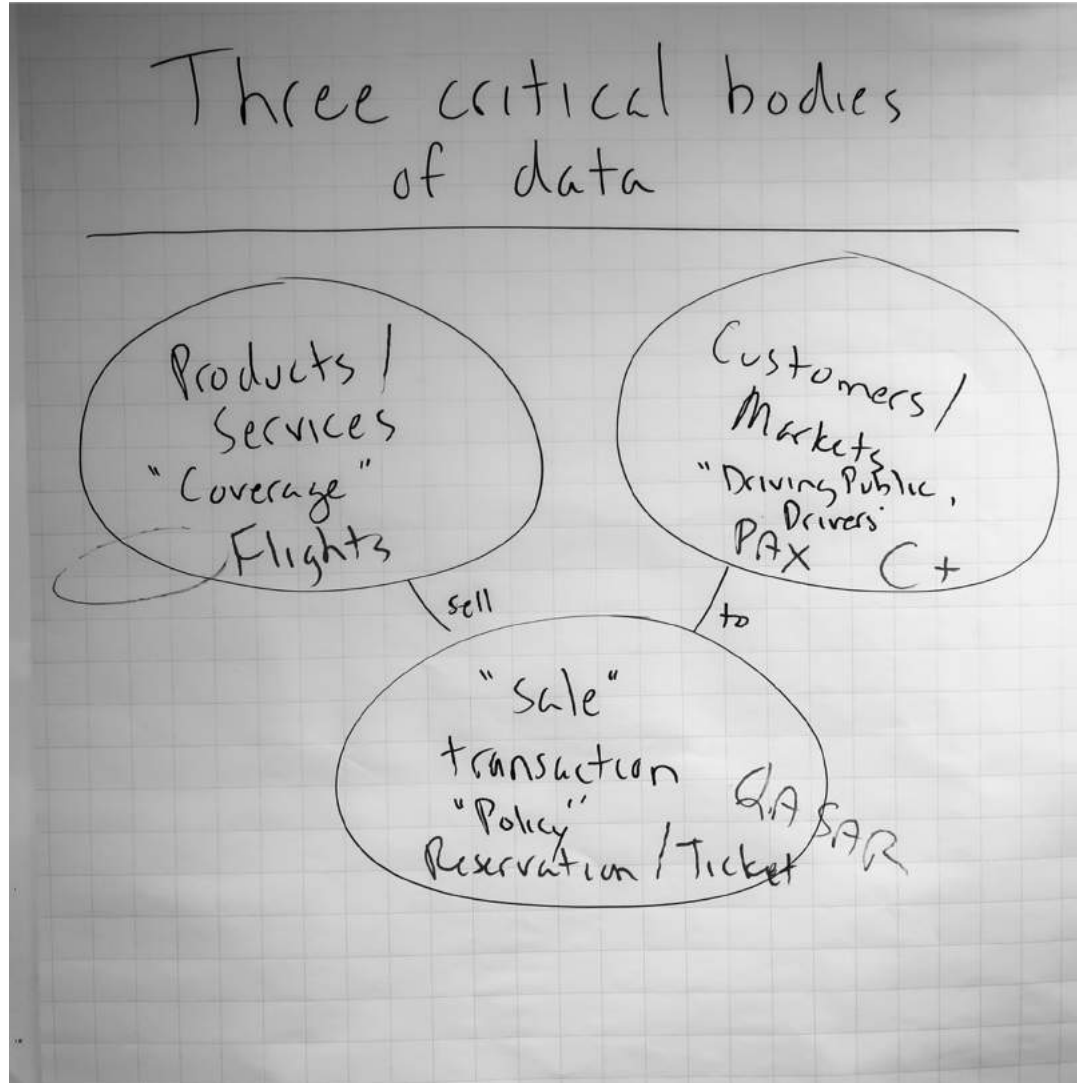 Three critical bodies
of data
Products /
Services
"Coverage"
Flights
Customers /
Markets
"Driving Public,
Drivers"
PAX C+
sell
to
"Sale"
transaction
"Policy"
Reservation / Ticket
QASAR